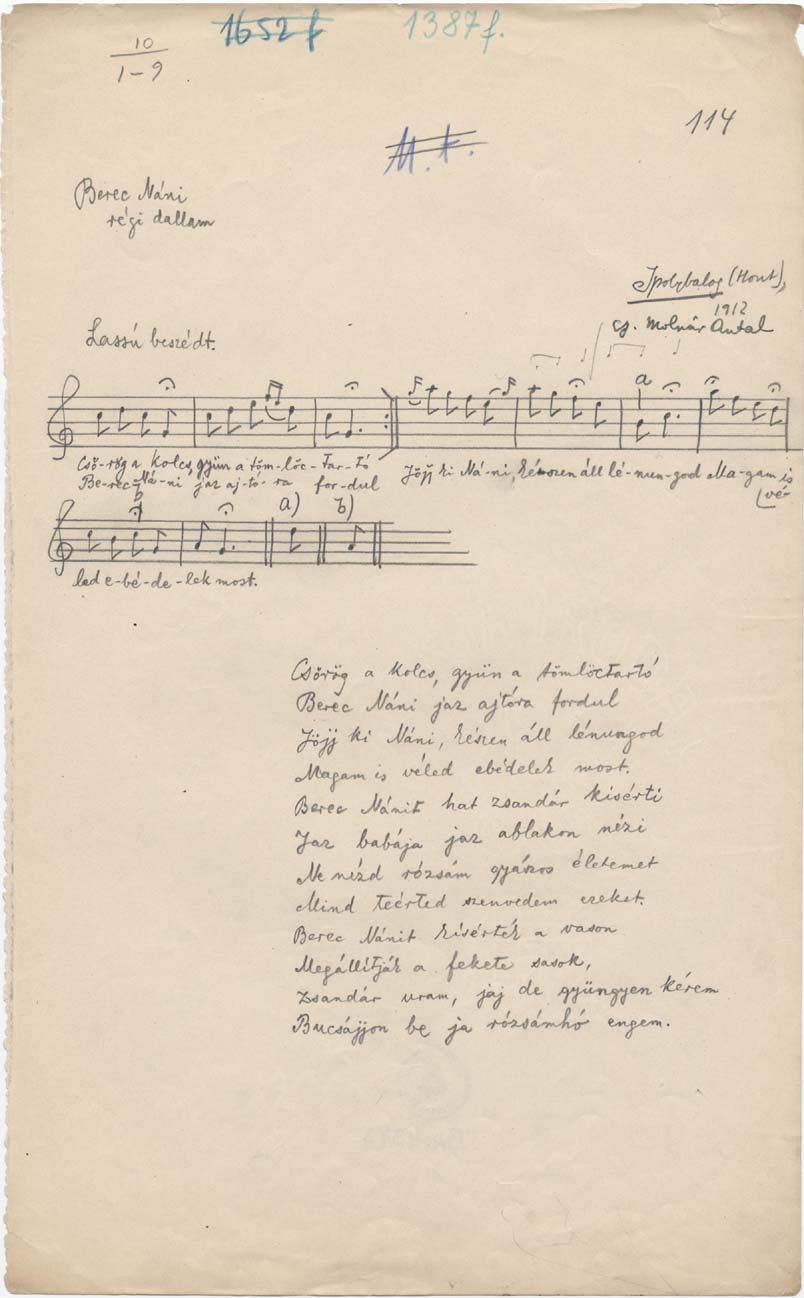 10
1-9
1652 f
1387 f.
114
M. F.
Berec Náni
régi dallam
Ipolybalog (Hont),
1912
Lassú beszédt.
gy. Molnár Antal
a
Csö-rög a kolcs, gyün a töm-löc-tar-tó
Be-rec Ná-ni jaz aj-tó-ra for-dul
Jöjj ki Ná-ni, készen áll lé-nun-god Ma-gam is
vé-
b
a) b)
led e-bé-de-lek most.
Csörög a kolcs, gyün a tömlöctartó
Berec Náni jaz ajtóra fordul
Jöjj ki Náni, készen áll lénungod
Magam is véled ebédelek most.
Berec Nánit hat zsandár kisérti
Jaz babája jaz ablakon nézi
Ne nézd rózsám gyászos életemet
Mind teérted szenvedem ezeket.
Berec Nánit kisérték a vason
Megállítják a fekete sasok,
Zsandár uram, jaj de gyüngyen kérem
Bucsájjon be ja rózsámhó engem.